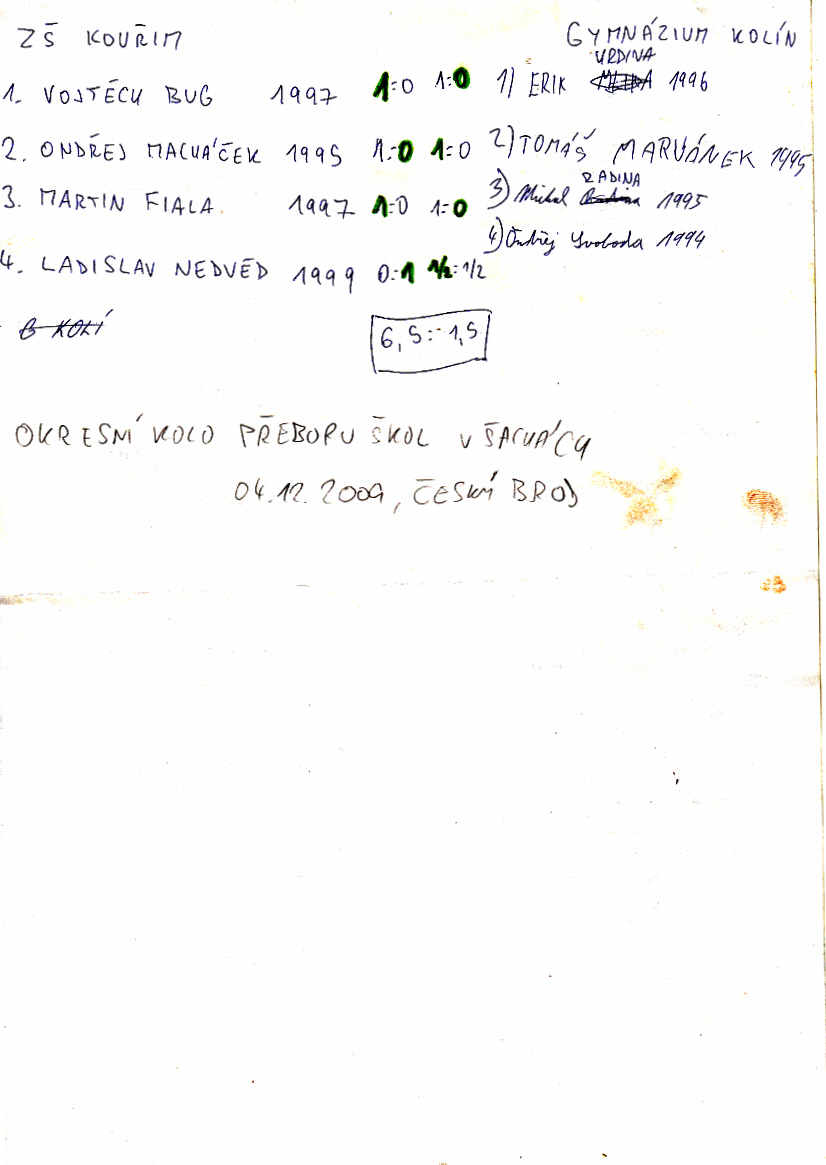 ZŠ KOUŘIM GYMNÁZIUM KOLÍN
VRDINA
1. VOJTĚCH BUG 1997 1:0 1:0 1) ERIK 1996
2. ONDŘEJ MACHÁČEK 1995 1:0 1:0 2) TOMÁŠ MARVÁNEK 1995
RADINA
3. MARTIN FIALA 1997 1:0 1:0 3) Michal 1995
4) Ondřej Svoboda 1994
4. LADISLAV NEDVĚD 1999 0:1 1/2:1/2
B KOLÍ
6,5:1,5
OKRESNÍ KOLO PŘEBORU ŠKOL V ŠACHÁCH
04.12.2009, ČESKÝ BROD